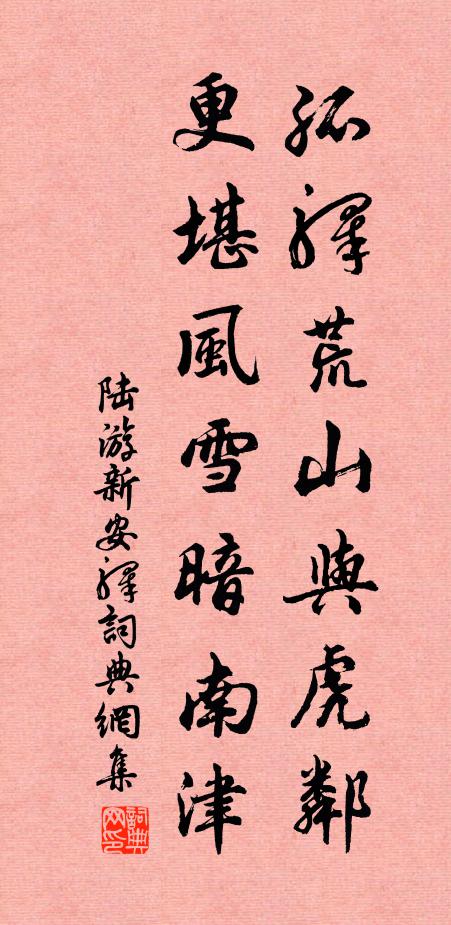 孤驛荒山與虎鄰
更堪風雪暗南津
陆游新安驛詞典網集
詞典網印